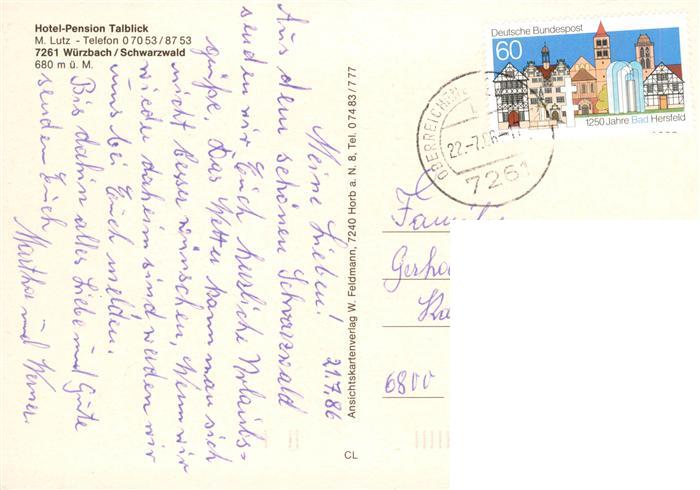 Hotel-Pension Talblick
M. Lutz - Telefon 0 70 53 / 87 53
7261 Würzbach / Schwarzwald
680 m ü. M.
Meine Lieben! 21.7.86
Aus dem schönen Schwarzwald
senden wir Euch herzliche Urlaubs-
grüße. Das Wetter kann man sich
nicht besser wünschen, Wenn wir
wieder daheim sind werden wir
uns bei Euch melden.
Bis dahin alles Liebe und Gute
senden Euch
Martha und Werner.
Ansichtskartenverlag W. Feldmann, 7240 Horb a. N. 8, Tel. 0 74 83 / 777
CL
Deutsche Bundespost
60
1250 Jahre Bad Hersfeld
22.-7.86
7261
6800